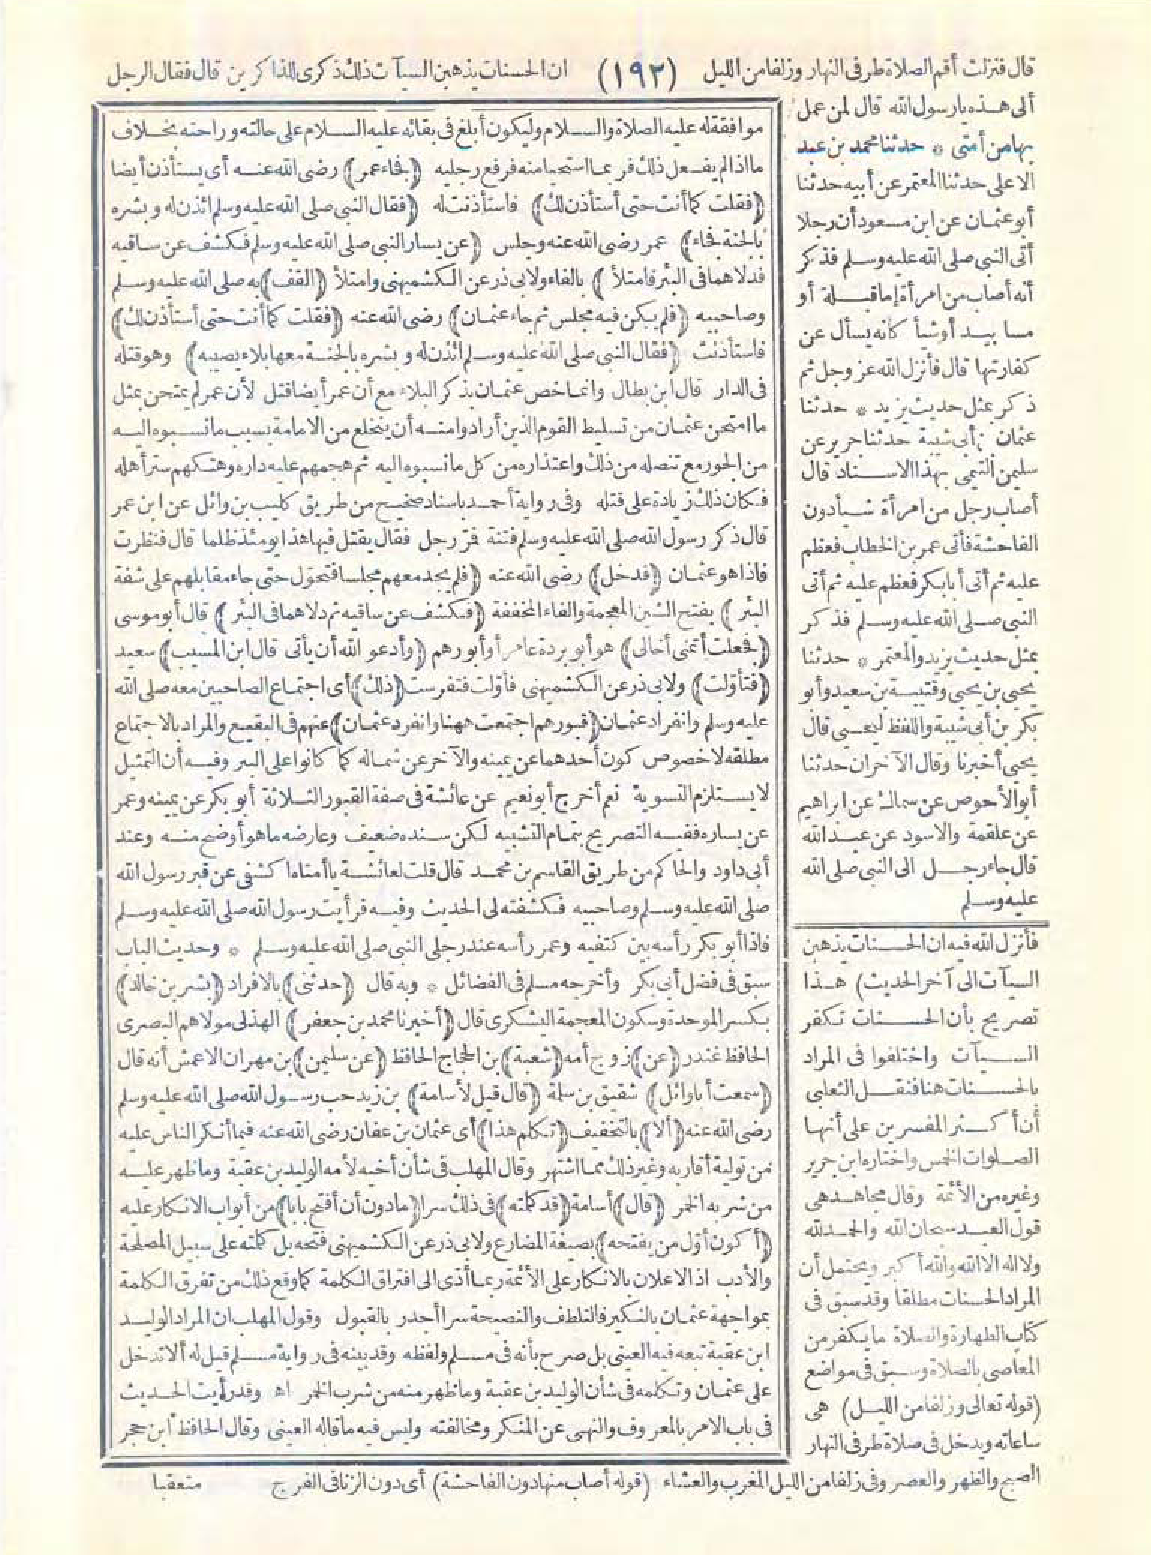 قال فنزلت أقم الصلاة طرفى النهار وزلفا من الليل (١٩٢) ان الحسنات يذهبن السيآت ذلك ذكرى للذاكرين قال فقال الرجل
ألى هذه يا رسول الله قال لمن عمل
بها من أمتى * حدثنا محمد بن عبد
الاعلى حدثنا المعتمر عن أبيه حدثنا
أبو عثمان عن ابن مسعود أن رجلا
أتى النبى صلى الله عليه وسلم فذكر
أنه أصاب من امرأة إما قبلة أو
مسا بيد أو شيأ كأنه يسأل عن
كفارتها قال فأنزل الله عز وجل ثم
ذكر بمثل حديث يزيد * حدثنا
عثمان بن أبى شيبة حدثنا جرير عن
سليمن التيمى بهذا الاسناد قال
أصاب رجل من امرأة شيأ دون
الفاحشة فأتى عمر بن الخطاب فعظم
عليه ثم أتى أبا بكر فعظم عليه ثم أتى
النبى صلى الله عليه وسلم فذكر
بمثل حديث يزيد والمعتمر * حدثنا
يحيى بن يحيى وقتيبة بن سعيد وأبو
بكر بن أبى شيبة واللفظ ليحيى قال
يحيى أخبرنا وقال الآخران حدثنا
أبو الأحوص عن سماك عن ابراهيم
عن علقمة والاسود عن عبد الله
قال جاء رجل الى النبى صلى الله
عليه وسلم
فأنزل الله فيه ان الحسنات يذهبن
السيآت الى آخر الحديث) هذا
تصريح بأن الحسنات تكفر
السيآت واختلفوا فى المراد
بالحسنات هنا فنقل الثعلبى
أن أكثر المفسرين على أنها
الصلوات الخمس واختاره ابن جرير
وغيره من الأئمة وقال مجاهد هى
قول العبد سبحان الله والحمد لله
ولا اله الا الله والله أكبر ويحتمل أن
المراد الحسنات مطلقا وقد سبق فى
كتاب الطهارة والصلاة ما يكفر من
المعاصى بالصلاة وسبق فى مواضع
(قوله تعالى وزلفا من الليل) هى
ساعاته ويدخل فى صلاة طرفى النهار
الصبح والظهر والعصر وفى زلفا من الليل المغرب والعشاء (قوله أصاب منها دون الفاحشة) أى دون الزنا فى الفرج
موافقة له عليه الصلاة والسلام وليكون أبلغ فى بقائه عليه السلام على حالته وراحته بخلاف
ما اذا لم يفعل ذلك فربما استحيا منه فرفع رجليه (فجاء عمر) رضى الله عنه أى يستأذن أيضا
(فقلت كما أنت حتى أستأذن لك) فاستأذنت له (فقال النبى صلى الله عليه وسلم ائذن له وبشره
بالجنة فجاء) عمر رضى الله عنه وجلس (عن يسار النبى صلى الله عليه وسلم فكشف عن ساقيه
فدلاهما فى البئر فامتلأ) بالفاء ولابى ذر عن الكشميهنى وامتلأ (القف) به صلى الله عليه وسلم
وصاحبيه (فلم يكن فيه مجلس ثم جاء عثمان) رضى الله عنه (فقلت كما أنت حتى أستأذن لك)
فاستأذنت (فقال النبى صلى الله عليه وسلم ائذن له وبشره بالجنة معها بلاء يصيبه) وهو قتله
فى الدار قال ابن بطال وانما خص عثمان بذكر البلاء مع أن عمر أيضا قتل لأن عمر لم يمتحن بمثل
ما امتحن عثمان من تسليط القوم الذين أرادوا منه أن ينخلع من الامامة بسبب ما نسبوه اليه
من الجور مع تنصله من ذلك واعتذاره من كل ما نسبوه اليه ثم هجمهم عليه داره وهتكهم ستر أهله
فكان ذلك زيادة على قتله وفى رواية أحمد باسناد صحيح من طريق كليب بن وائل عن ابن عمر
قال ذكر رسول الله صلى الله عليه وسلم فتنة فمر رجل فقال يقتل فيها هذا يومئذ ظلما قال فنظرت
فاذا هو عثمان (فدخل) رضى الله عنه (فلم يجد معهم مجلسا فتحول حتى جاء مقابلهم على شفة
البئر) بفتح الشين المعجمة والفاء المخففة (فكشف عن ساقيه ثم دلاهما فى البئر) قال أبو موسى
(فجعلت أتمنى أخا لى) هو أبو بردة عامر أو أبو رهم (وأدعو الله أن يأتى قال ابن المسيب) سعيد
(فتأولت) ولابى ذر عن الكشميهنى فأولت فتفرست (ذلك) أى اجتماع الصاحبين معه صلى الله
عليه وسلم وانفراد عثمان (قبورهم اجتمعت ههنا وانفرد عثمان) عنهم فى البقيع والمراد بالاجتماع
مطلقه لا خصوص كون أحدهما عن يمينه والآخر عن شماله كما كانوا على البئر وفيه أن التمثيل
لا يستلزم التسوية نعم أخرج أبو نعيم عن عائشة فى صفة القبور الثلاثة أبو بكر عن يمينه وعمر
عن يساره ففيه التصريح بتمام التشبيه لكن سنده ضعيف وعارضه ما هو أوضح منه وعند
أبى داود والحاكم من طريق القاسم بن محمد قال قلت لعائشة يا أمتاه اكشفى عن قبر رسول الله
صلى الله عليه وسلم وصاحبيه فكشفته لى الحديث وفيه فرأيت رسول الله صلى الله عليه وسلم
فاذا أبو بكر رأسه بين كتفيه وعمر رأسه عند رجلى النبى صلى الله عليه وسلم * وحديث الباب
سبق فى فضل أبى بكر وأخرجه مسلم فى الفضائل * وبه قال (حدثنى) بالافراد (بشر بن خالد)
بكسر الموحدة وسكون المعجمة اليشكرى قال (أخبرنا محمد بن جعفر) الهذلى مولاهم البصرى
الحافظ غندر (عن) زوج أمه (شعبة) بن الحجاج الحافظ (عن سليمن) بن مهران الاعمش أنه قال
(سمعت أبا وائل) شقيق بن سلمة (قال قيل لأسامة) بن زيد حب رسول الله صلى الله عليه وسلم
رضى الله عنه (ألا) بالتخفيف (تكلم هذا) أى عثمان بن عفان رضى الله عنه فيما أنكر الناس عليه
من تولية أقاربه وغير ذلك مما اشتهر وقال المهلب فى شأن أخيه لأمه الوليد بن عقبة وما ظهر عليه
من شربه الخمر (قال) أسامة (قد كلمته) فى ذلك سرا (ما دون أن أفتح بابا) من أبواب الانكار عليه
(أكون أول من يفتحه) بصيغة المضارع ولابى ذر عن الكشميهنى فتحه بل كلمته على سبيل المصلحة
والأدب اذ الاعلان بالانكار على الأئمة ربما أدى الى افتراق الكلمة كما وقع ذلك من تفرق الكلمة
بمواجهة عثمان بالنكير فالتلطف والنصيحة سرا أجدر بالقبول وقول المهلب ان المراد الوليد
ابن عقبة تبعه فيه العينى بل صرح بأنه فى مسلم ولفظه وقد بينه فى رواية مسلم قيل له ألا تدخل
على عثمان وتكلمه فى شأن الوليد بن عقبة وما ظهر منه من شرب الخمر اه وقد رأيت الحديث
فى باب الامر بالمعروف والنهى عن المنكر ومخالفته وليس فيه ما قاله العينى وقال الحافظ ابن حجر
متعقبا